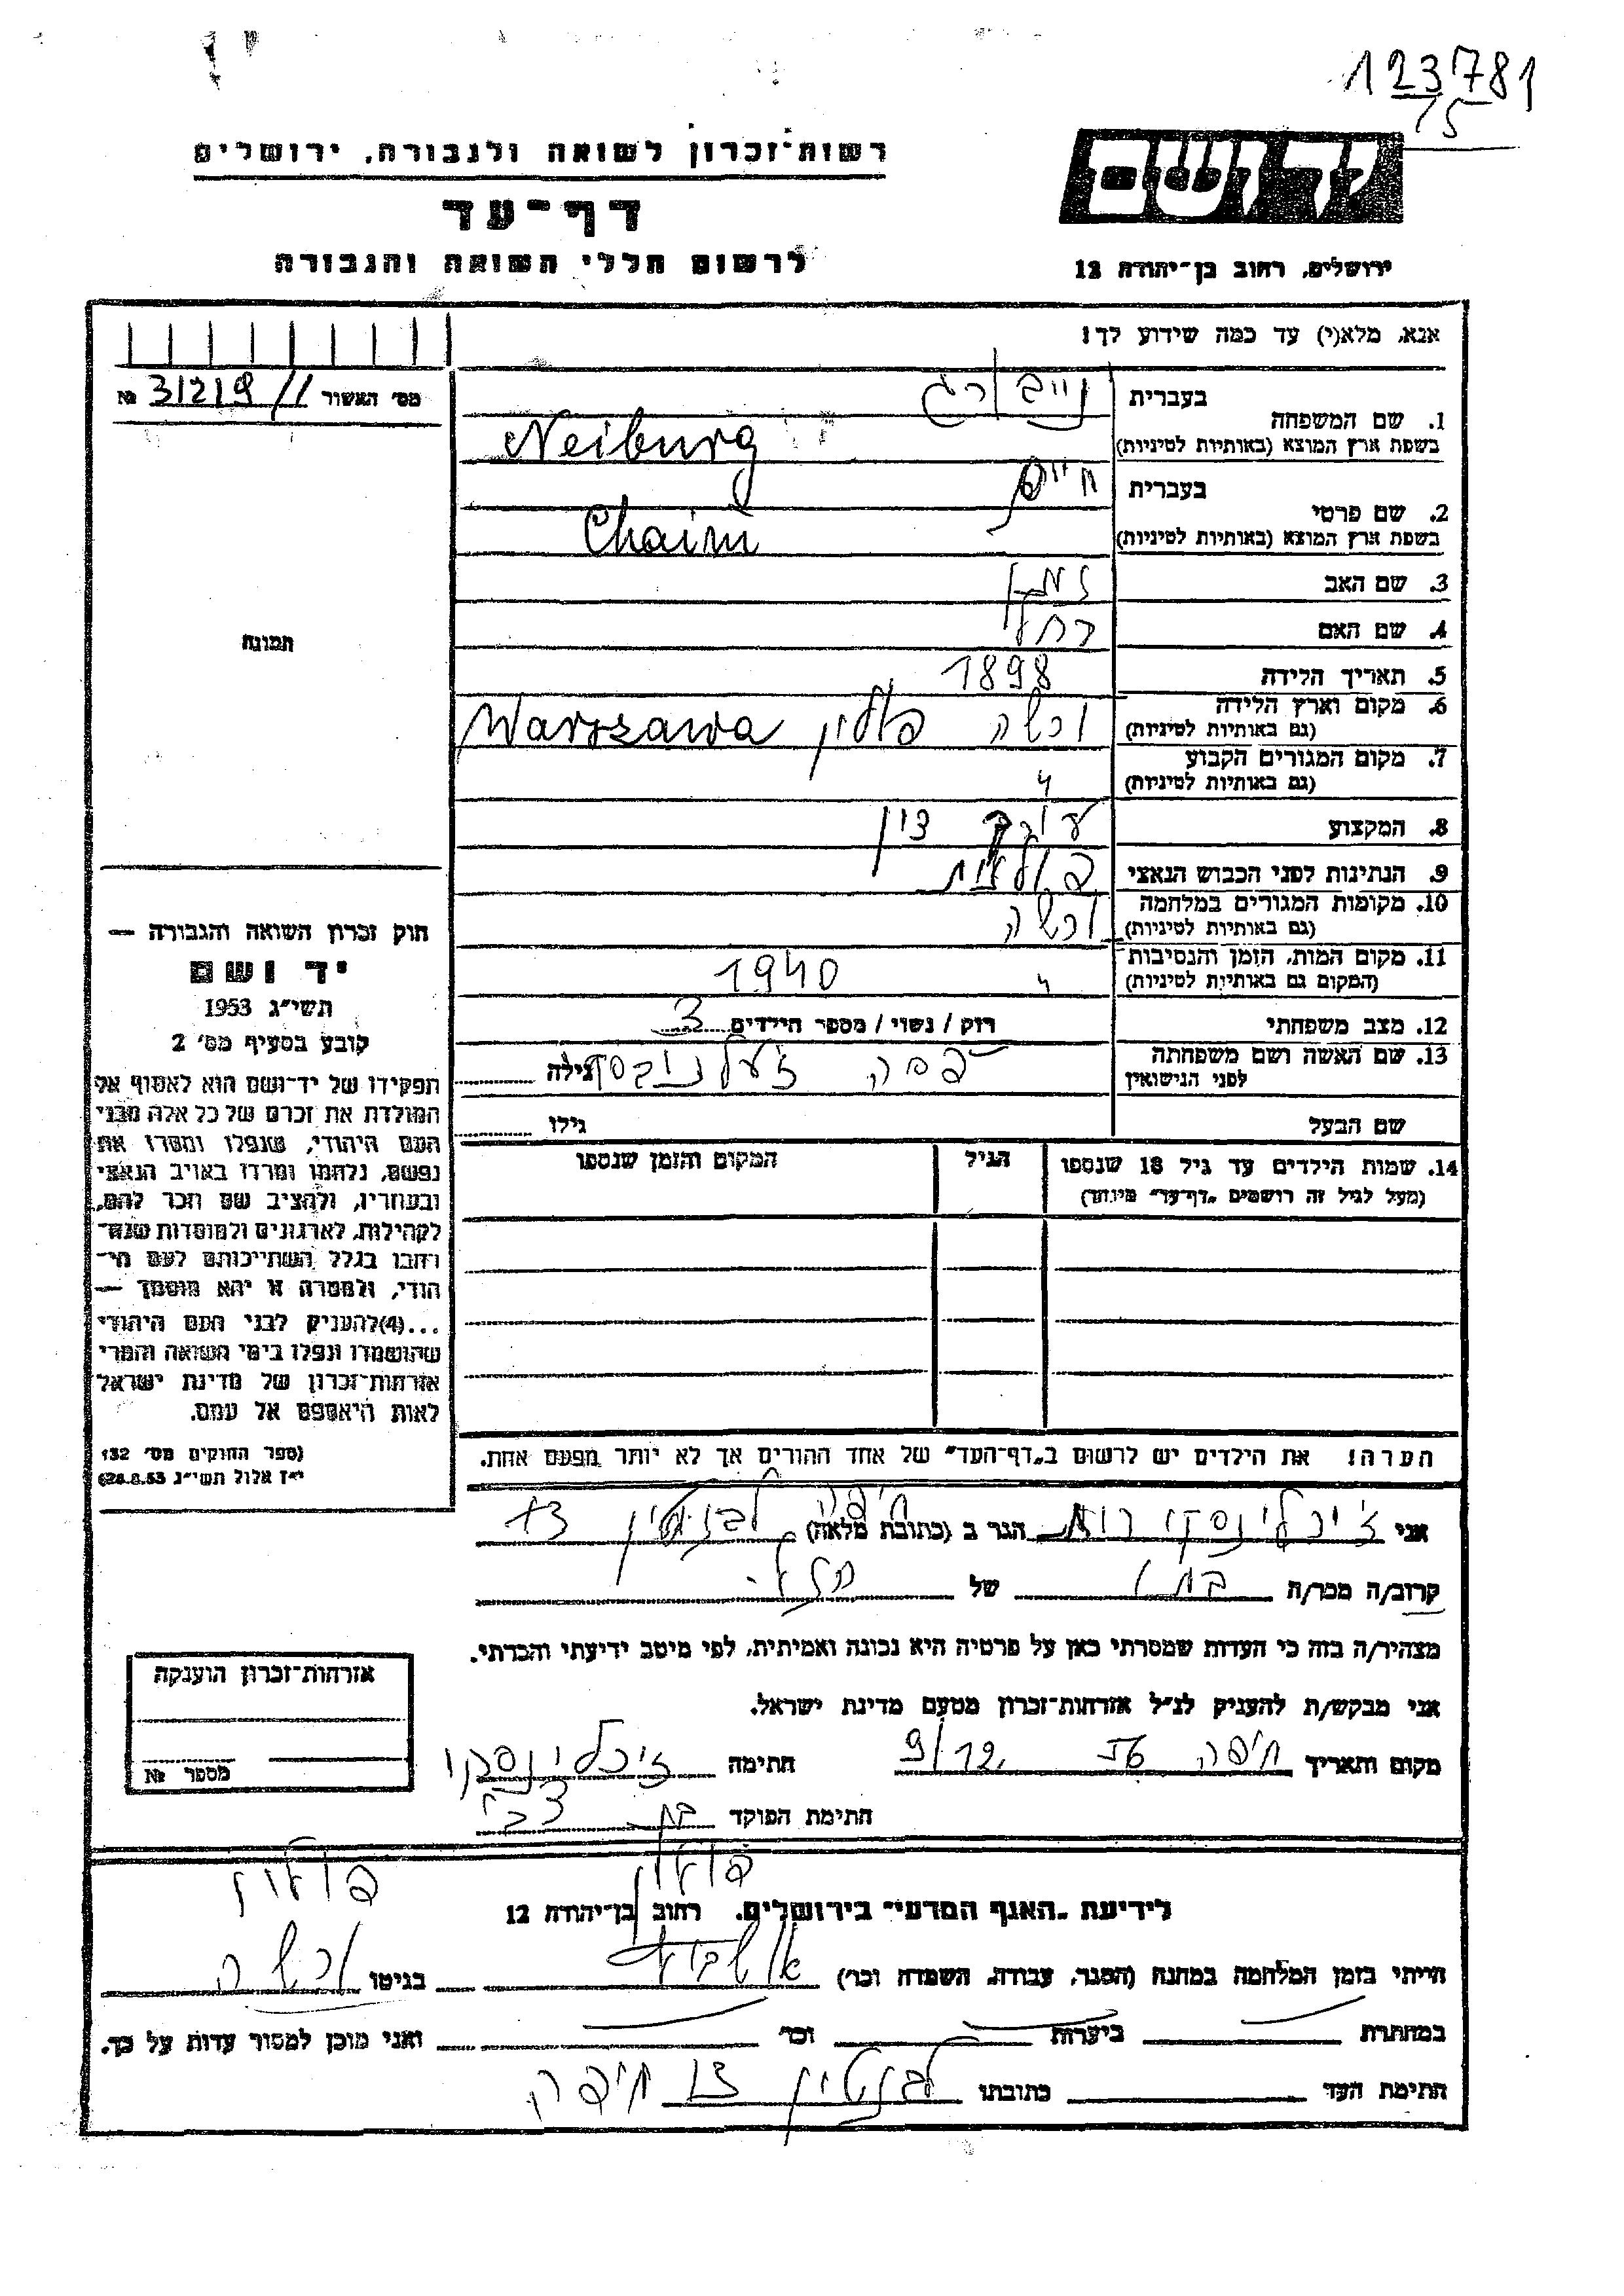 123781
15
יד ושם
רשות־זכרון לשואה ולגבורה, ירושלים
דף־עד
לרשום חללי השואה והגבורה
ירושלים, רחוב בן־יהודה 12
אנא, מלא(י) עד כמה שידוע לך!
מס' האשור 31219 // №
1. שם המשפחה
בעברית נייבורג
בשפת ארץ המוצא (באותיות לטיניות) Neiburg
2. שם פרטי
בעברית חיים
בשפת ארץ המוצא (באותיות לטיניות) Chaim
3. שם האב
4. שם האם רחל
5. תאריך הלידה 1898
6. מקום וארץ הלידה ורשה פולין Warszawa
(גם באותיות לטיניות)
7. מקום המגורים הקבוע "
(גם באותיות לטיניות)
8. המקצוע
9. הנתינות לפני הכבוש הנאצי פולנית
10. מקומות המגורים במלחמה ורשה
(גם באותיות לטיניות)
11. מקום המות, הזמן והנסיבות " 1940
(המקום גם באותיות לטיניות)
12. מצב משפחתי רוק / נשוי / מספר הילדים 3
13. שם האשה ושם משפחתה
לפני הנישואין
גילה
שם הבעל גילו
14. שמות הילדים עד גיל 18 שנספו
(מעל לגיל זה רושמים „דף־עד" מיוחד)
הגיל
המקום והזמן שנספו
הערה! את הילדים יש לרשום ב„דף־העד" של אחד ההורים אך לא יותר מפעם אחת.
תמונה
חוק זכרון השואה והגבורה —
יד ושם
תשי"ג 1953
קובע בסעיף מס' 2
תפקידו של יד־ושם הוא לאסוף אל
המולדת את זכרם של כל אלה מבני
העם היהודי, שנפלו ומסרו את
נפשם, נלחמו ומרדו באויב הנאצי
ובעוזריו, ולהציב שם וזכר להם,
לקהילות, לארגונים ולמוסדות שנח־
רבו בגלל השתייכותם לעם הי־
הודי, ולמטרה זו יהא מוסמך —
...(4)להעניק לבני העם היהודי
שהושמדו ונפלו בימי השואה והמרי
אזרחות־זכרון של מדינת ישראל
לאות היאספם אל עמם.
(ספר החוקים מס' 132
י"ז אלול תשי"ג 28.8.53)
אני הגר ב (כתובת מלאה) חיפה 13
קרוב/ה מכר/ה של
מצהיר/ה בזה כי העדות שמסרתי כאן על פרטיה היא נכונה ואמיתית, לפי מיטב ידיעתי והכרתי.
אני מבקש/ת להעניק לנ"ל אזרחות־זכרון מטעם מדינת ישראל.
מקום ותאריך חיפה 9/12 חתימה
חתימת הפוקד
אזרחות־זכרון הוענקה
מספר №
פולין פולין
לידיעת „האגף המדעי" בירושלים, רחוב בן־יהודה 12
הייתי בזמן המלחמה במחנה (הסגר, עבודה, השמדה וכו') בגיטו ורשה
במחתרת ביערות וכו' ואני מוכן למסור עדות על כך.
חתימת העד כתובתו חיפה